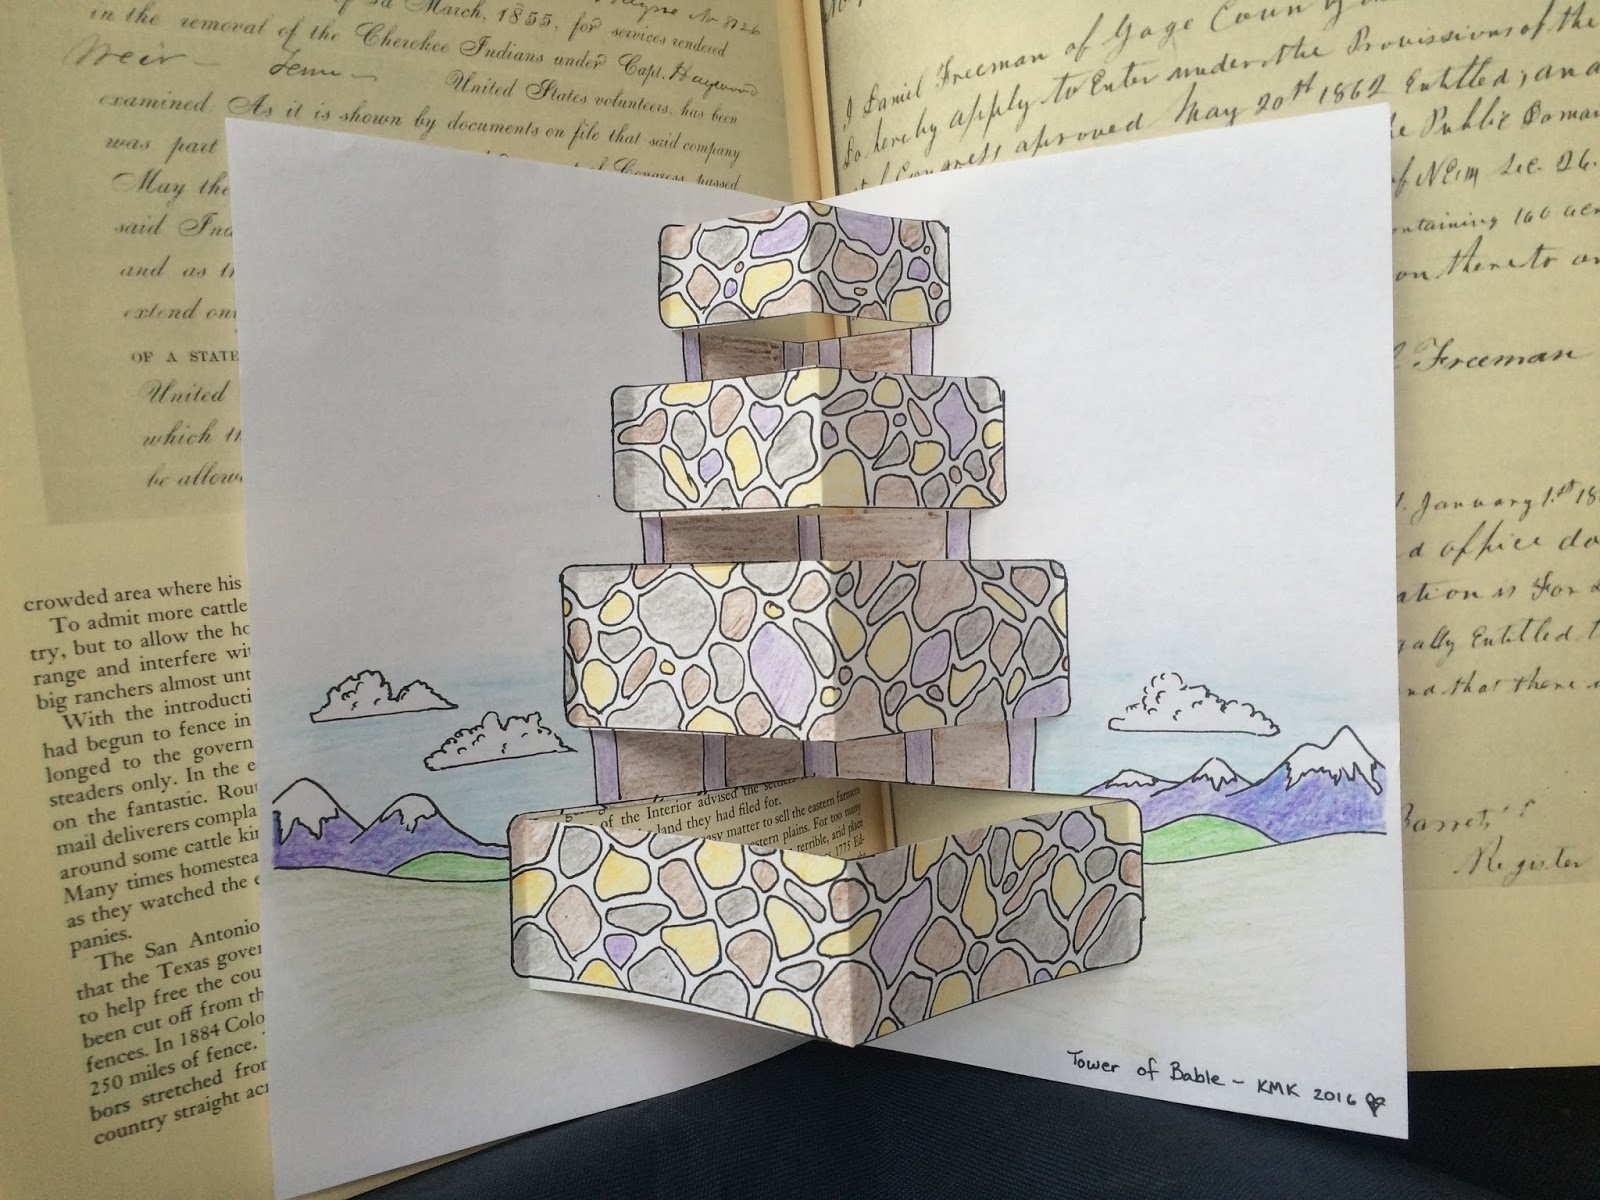 of 3d March, 1855, for services rendered
in the removal of the Cherokee Indians under Capt. Haywood
Weir — Tenn —
United States volunteers, has been
examined. As it is shown by documents on file that said company
was part
of Congress passed
May the
said Ind
and as th
extend on
OF A STATE
United
which th
be allow
crowded area where his
To admit more cattle
try, but to allow the ho
range and interfere wi
big ranchers almost unt
With the introducti
had begun to fence in
longed to the govern
steaders only. In the e
on the fantastic. Rou
mail deliverers compla
around some cattle ki
Many times homestea
as they watched the e
panies.
The San Antonio
that the Texas gover
to help free the cou
been cut off from th
fences. In 1884 Colo
250 miles of fence.
bors stretched fro
country straight acr
of the Interior advised the settlers
land they had filed for.
easy matter to sell the eastern farmers
western plains. For too many
terrible, and place
1775 Ed-
I Daniel Freeman of Gage County
Do hereby apply to Enter under the Provisions of the
of Congress aproved May 20th 1862 Entitled, an a
the Public Domai
of NE¼ Sec. 26.
ontaining 160 acr
on thereto an
Freeman
January 1st 18
d office do
ation is For
gally Entitled t
nd that there i
Barrett
Register
Tower of Bable - KMK 2016